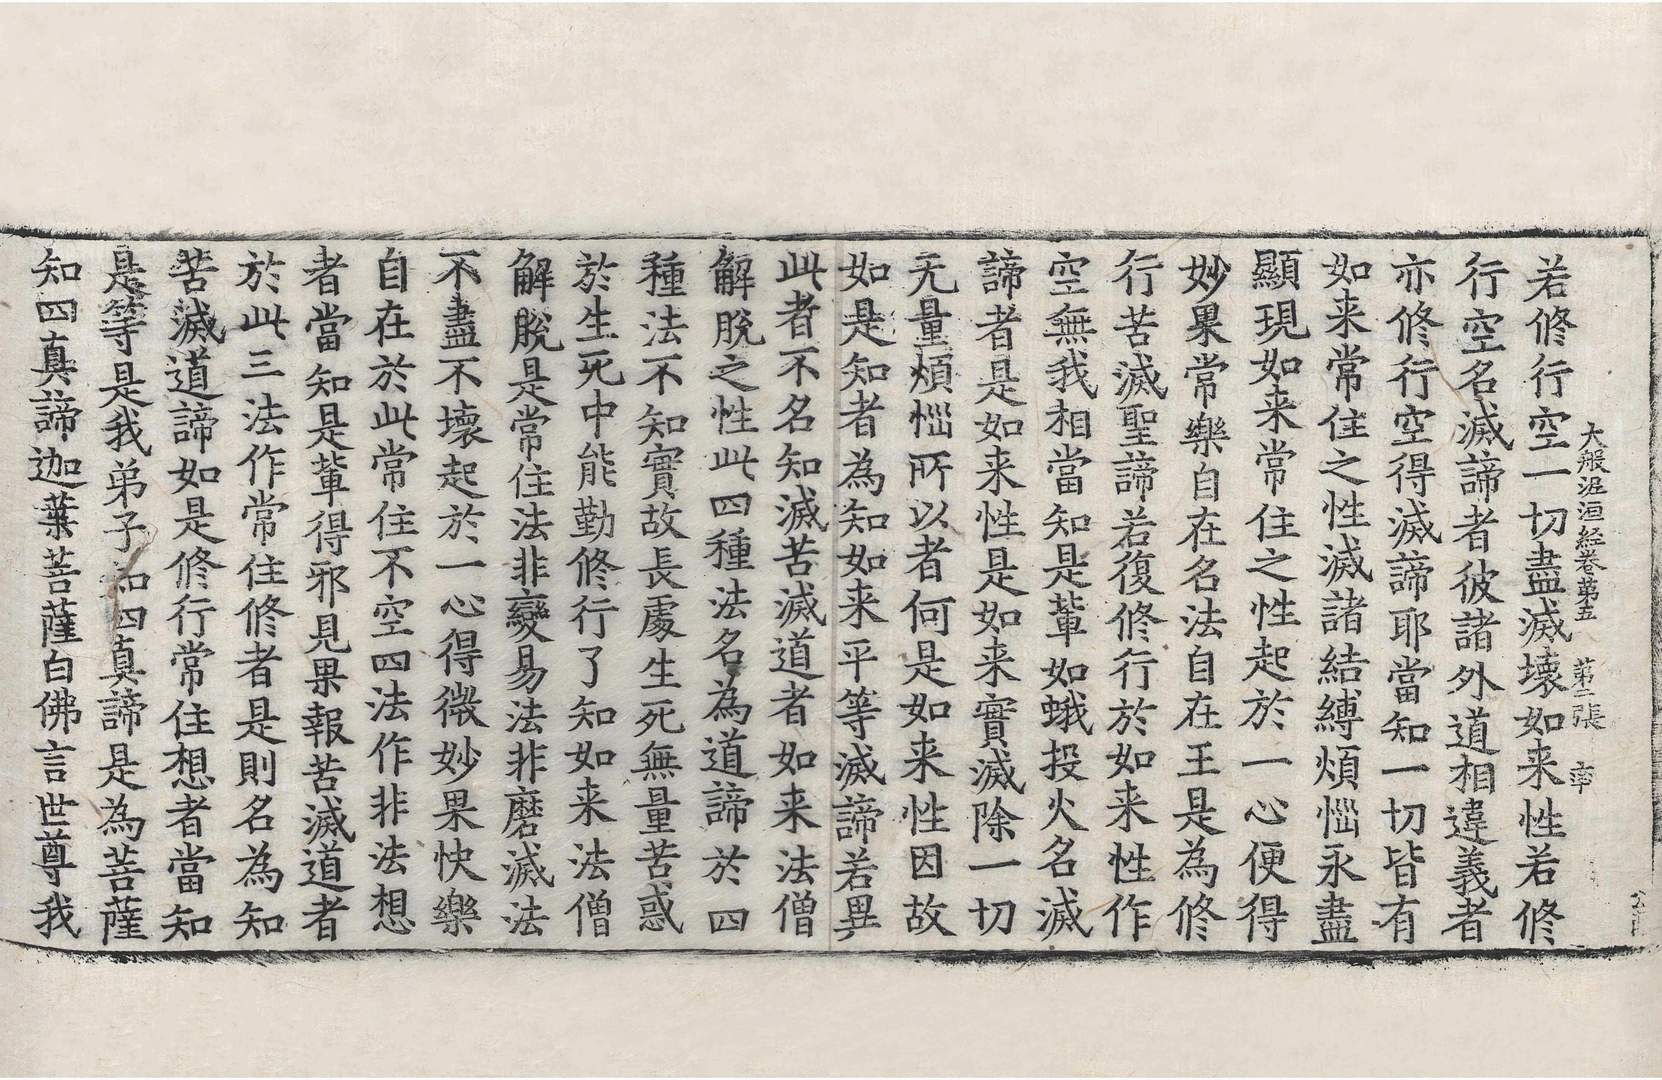 大般泥洹經卷第五 第二張 率
若修行空一切盡滅壞如来性若修
行空名滅諦者彼諸外道相違義者
亦修行空得滅諦耶當知一切皆有
如来常住之性滅諸結縛煩惱永盡
顯現如来常住之性起於一心便得
妙果常樂自在名法自在王是為修
行苦滅聖諦若復修行於如来性作
空無我相當知是輩如蛾投火名滅
諦者是如来性是如来實滅除一切
无量煩惱所以者何是如来性因故
如是知者為知如来平等滅諦若異
此者不名知滅苦滅道者如来法僧
解脫之性此四種法名為道諦於四
種法不知實故長處生死無量苦惑
於生死中能勤修行了知如来法僧
解脫是常住法非變易法非磨滅法
不盡不壞起於一心得微妙果快樂
自在於此常住不空四法作非法想
者當知是輩得邪見果報苦滅道者
於此三法作常住修者是則名為知
苦滅道諦如是修行常住想者當知
是等是我弟子知四真諦是為菩薩
知四真諦迦葉菩薩白佛言世尊我